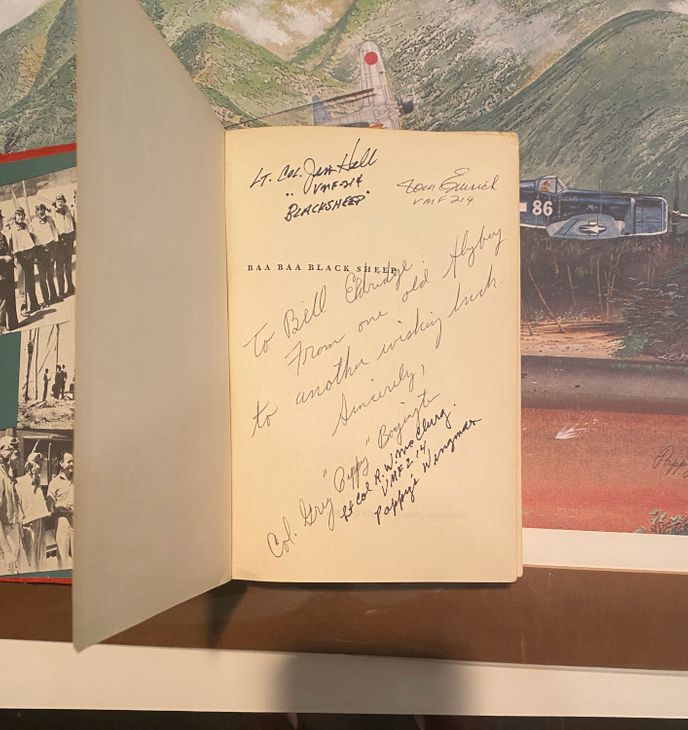 Lt. Col. Jim Hill
"VMF 214
BLACKSHEEP"
Tom Emrich
VMF 214
BAA BAA BLACK SHEEP
To Bill Eldridge:
From one old flyboy
to another wishing luck.
Sincerely,
Col. Greg "Pappy" Boyington
Lt Col R.W. McClurg.
VMF 214
Pappy's Wingman
86
Pappy